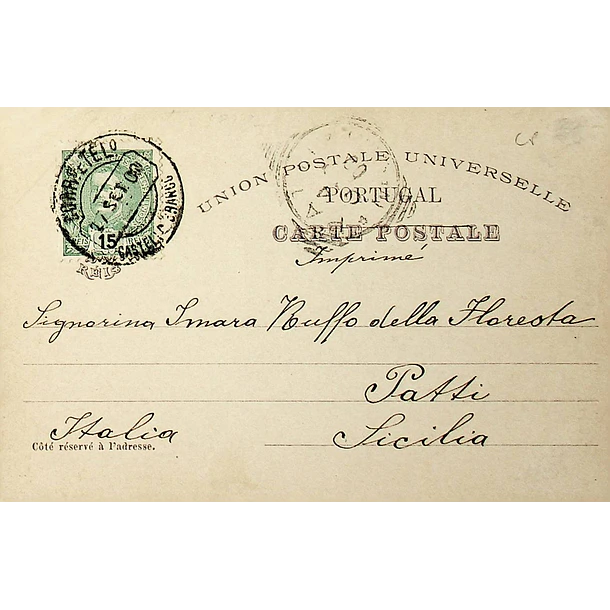 UNION POSTALE UNIVERSELLE
PORTUGAL
CARTE POSTALE
Imprimé
CORR E TELO
17 SET 03
15
REIS
Signorina Imara Ruffo della Floresta
Patti
Italia
Sicilia
Côté réservé à l'adresse.